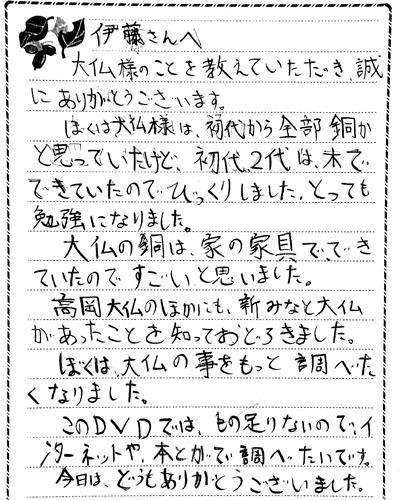 伊藤さんへ
大仏様のことを教えていただき、誠
にありがとうございます。
ぼくは大仏様は、初代から全部銅か
と思っていたけど、初代、2代は、木で
できていたのでびっくりしました。とっても
勉強になりました。
大仏の銅は、家の家具で、でき
ていたのですごいと思いました。
高岡大仏のほかにも、新みなと大仏
があったことを知っておどろきました。
ぼくは、大仏の事をもっと調べた
くなりました。
このDVDでは、もの足りないので、イ
ンターネットや、本とかで調べたいです。
今日は、どうもありがとうございました。